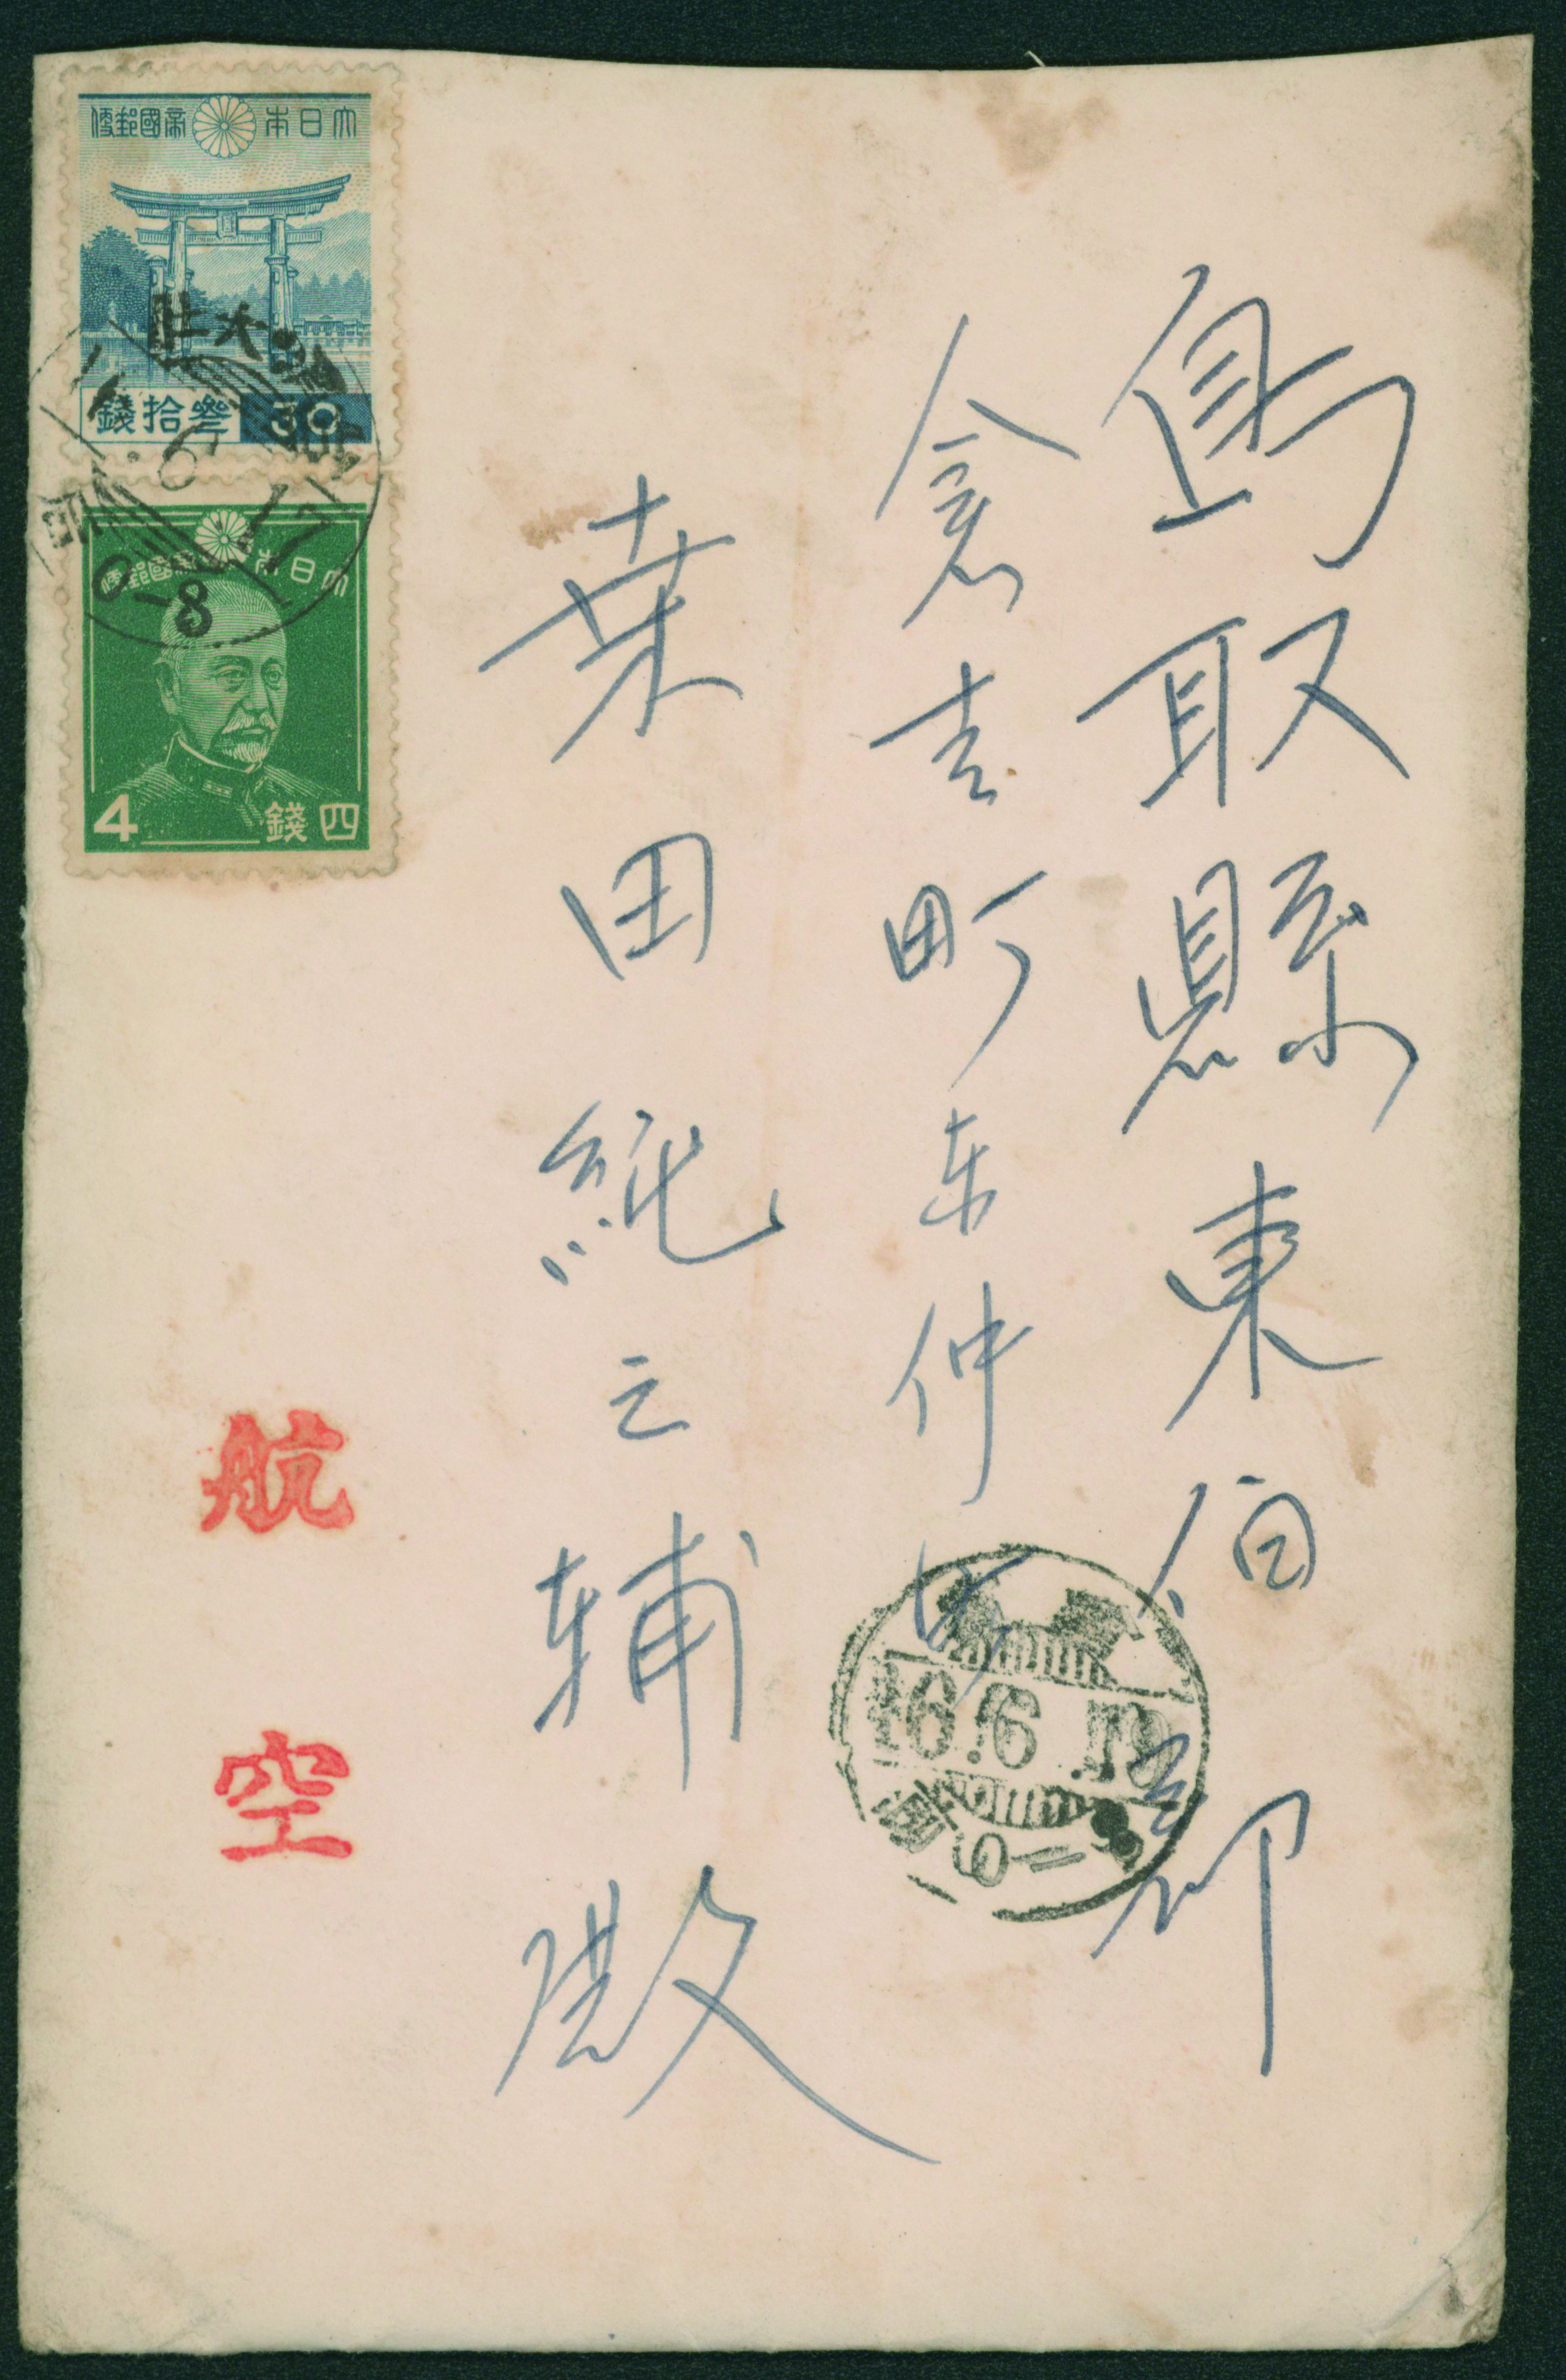 鳥取縣東伯郡
倉吉町東仲町
桒田純之輔殿
大日本帝國郵便
參拾錢 30
大日本帝國郵便
4 四錢
6 17
0-8
16.6.19
0-8
航空